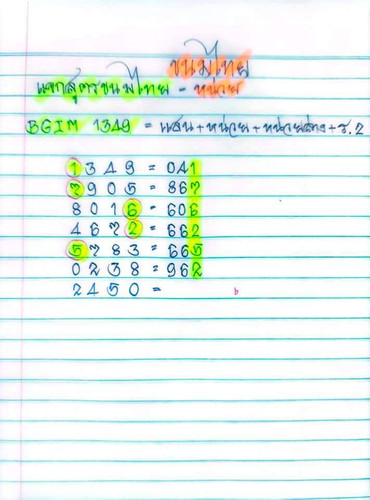 ขนมไทย
แจกสูตรขนมไทย - หน่วย
BGIM 1349 = แสน + หน่วย + หน่วยล่าง + ร.2
1349 = 041
7905 = 867
8016 = 606
4672 = 662
5783 = 665
0238 = 962
2450 =